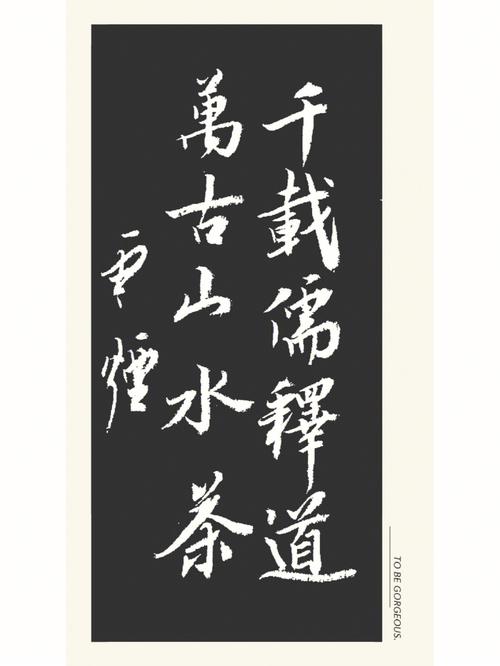 千載儒釋道
萬古山水茶
TO BE GORGEOUS.